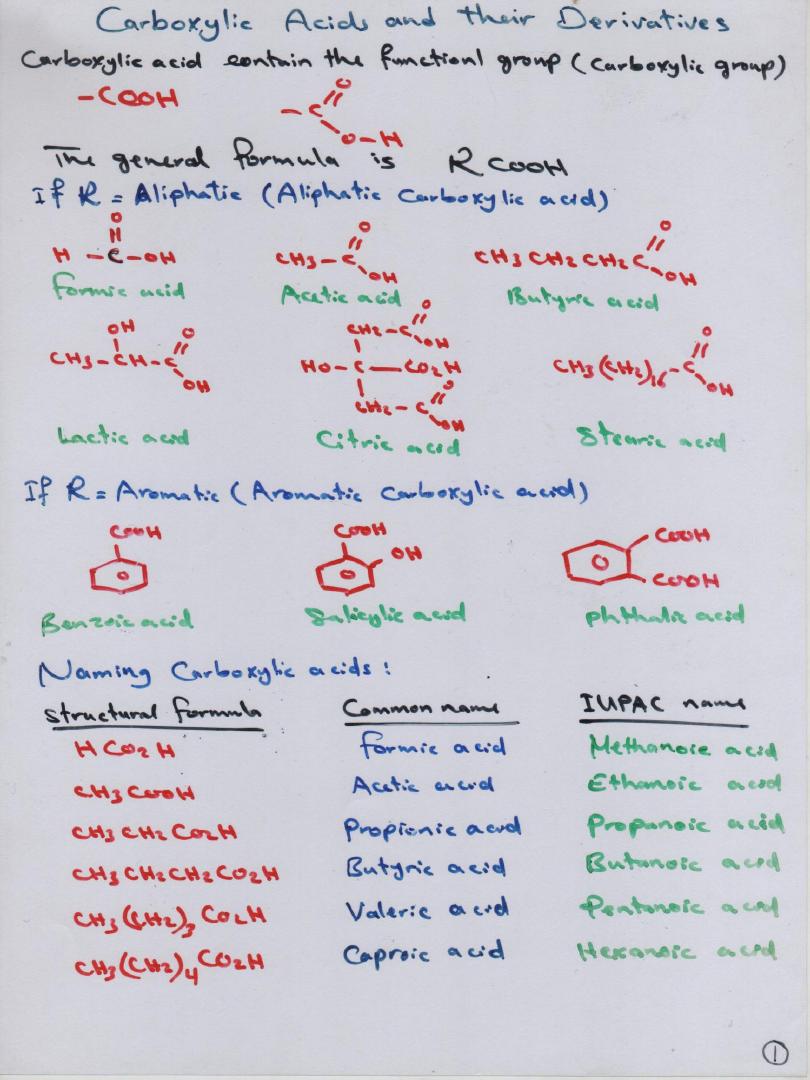 Carboxylic Acids and their Derivatives
Carboxylic acid contain the functionl group (Carboxylic group)
-COOH   -C(=O)O-H
The general formula is RCOOH
If R = Aliphatic (Aliphatic Carboxylic acid)
H-C(=O)-OH   CH3-C(=O)OH   CH3CH2CH2C(=O)OH
Formic acid   Acetic acid   Butyric acid
CH3-CH(OH)-C(=O)OH   HO-C(CH2-C(=O)OH)(CH2-C(=O)OH)-CO2H   CH3(CH2)16-C(=O)OH
Lactic acid   Citric acid   Stearic acid
If R = Aromatic (Aromatic Carboxylic acid)
COOH   COOH OH   COOH COOH
Benzoic acid   Salicylic acid   phthalic acid
Naming Carboxylic acids:
Structural formula   Common name   IUPAC name
HCO2H   Formic acid   Methanoic acid
CH3COOH   Acetic acid   Ethanoic acid
CH3CH2CO2H   Propionic acid   Propanoic acid
CH3CH2CH2CO2H   Butyric acid   Butanoic acid
CH3(CH2)3CO2H   Valeric acid   Pentanoic acid
CH3(CH2)4CO2H   Caproic acid   Hexanoic acid
1